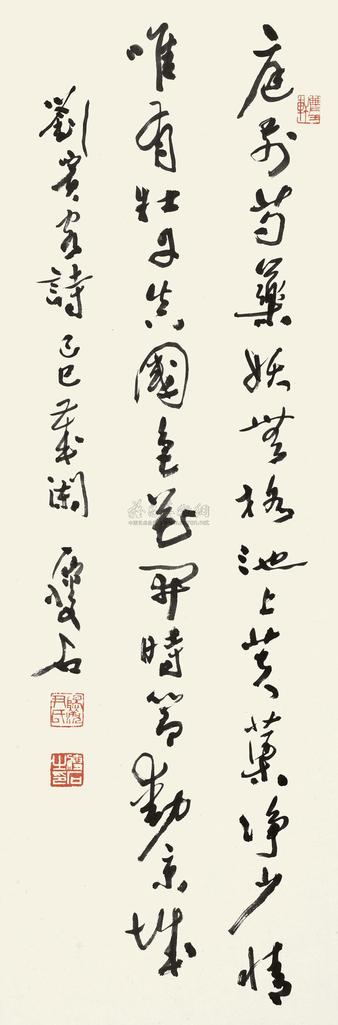 庭前芍藥妖無格池上芙蕖淨少情
唯有牡丹真國色花開時節動京城
劉賓客詩己巳歲闌